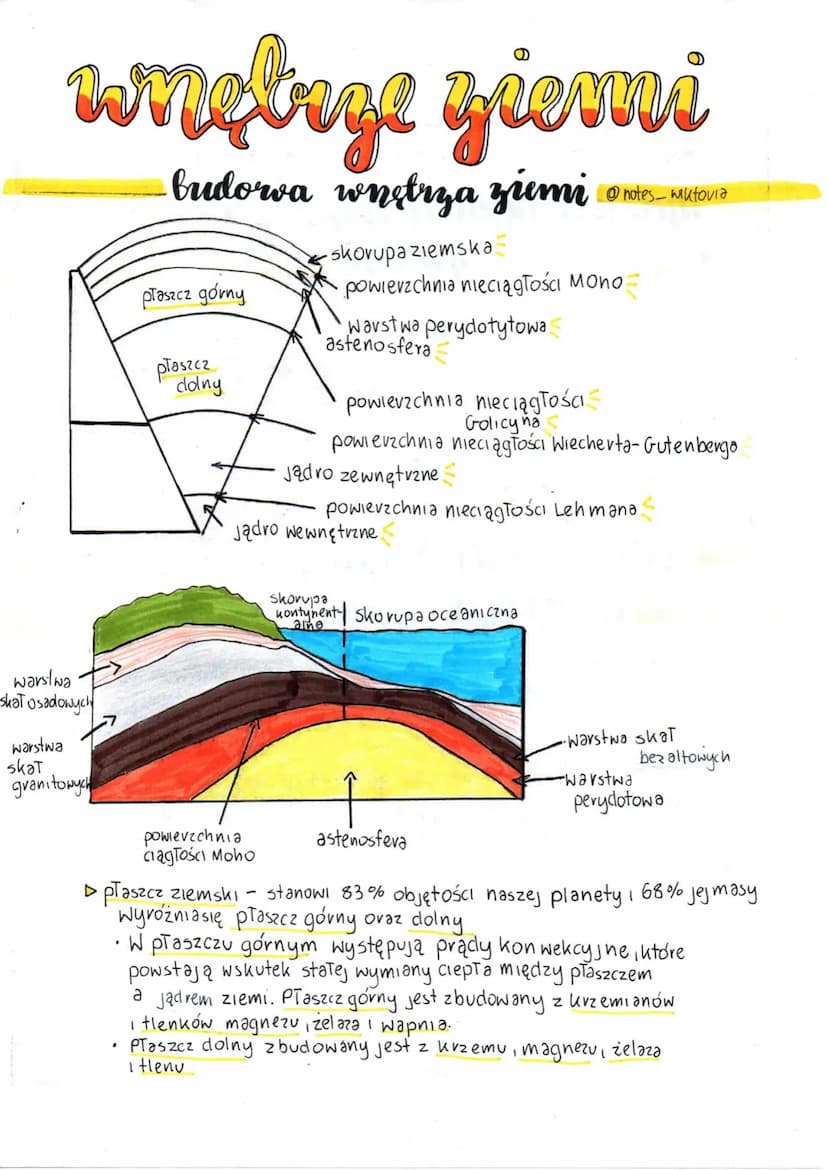 wnętrze ziemi
budowa wnętrza ziemi @notes_wiktoria
skorupa ziemska
powierzchnia nieciągłości Mono
płaszcz górny
warstwa perydotytowa
astenosfera
płaszcz
dolny
powierzchnia nieciągłości
Golicyna
powierzchnia nieciągłości Wiecherta-Gutenberga
jądro zewnętrzne
powierzchnia nieciągłości Lehmana
jądro wewnętrzne
skorupa
kontynent-
alna
skorupa oceaniczna
warstwa
skał osadowych
warstwa
skał
granitowych
warstwa skał
bezaltowych
warstwa
perydotowa
powierzchnia
ciągłości Moho
astenosfera
płaszcz ziemski - stanowi 83% objętości naszej planety i 68% jej masy
wyróżnia się płaszcz górny oraz dolny
· W płaszczu górnym występują prądy konwekcyjne, które
powstają wskutek stałej wymiany ciepła między płaszczem
a jądrem ziemi. Płaszcz górny jest zbudowany z krzemianów
i tlenków magnezu, żelaza i wapnia.
· Płaszcz dolny zbudowany jest z krzemu, magnezu, żelaza
i tlenu